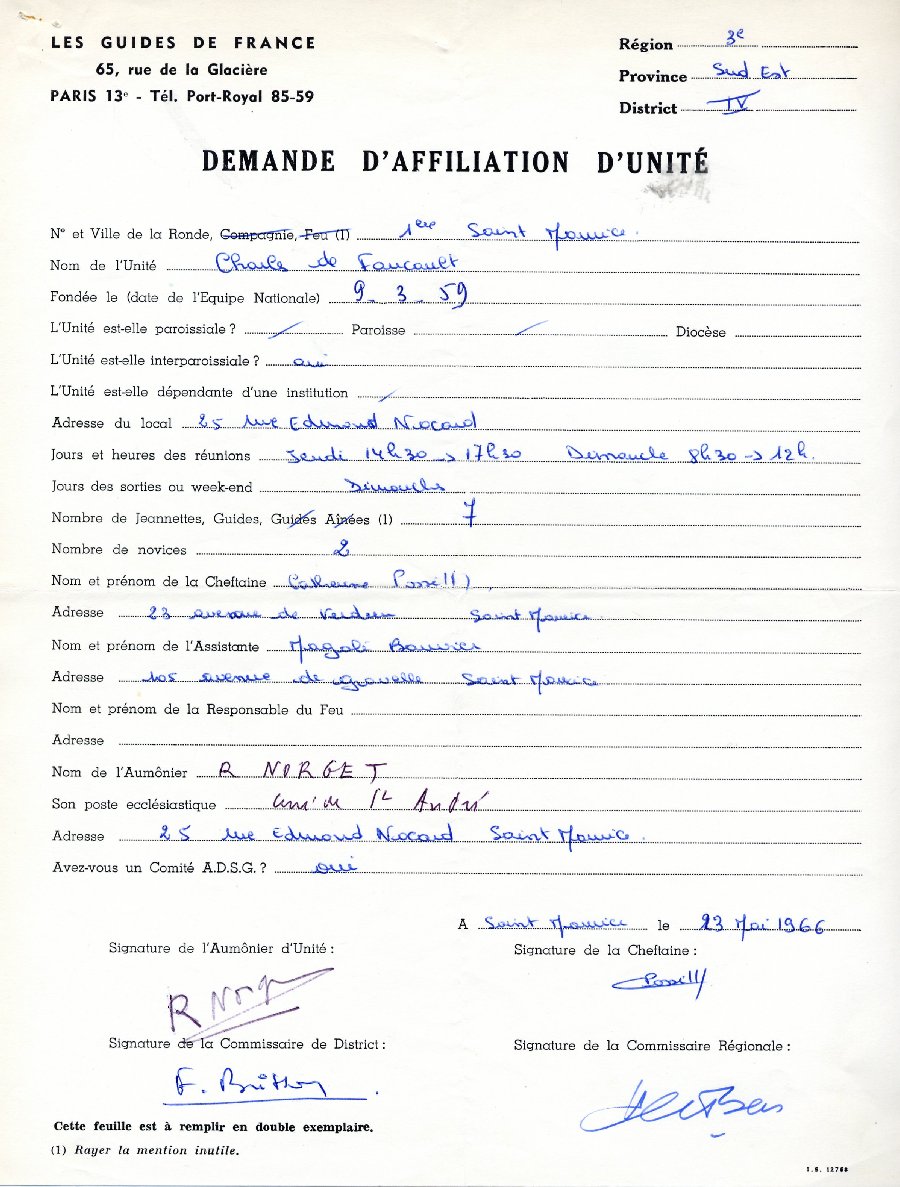 LES GUIDES DE FRANCE
65, rue de la Glacière
PARIS 13e - Tél. Port-Royal 85-59
Région 3e
Province Sud Est
District IV
DEMANDE D'AFFILIATION D'UNITÉ
N° et Ville de la Ronde, Compagnie, Feu (1) 1ère Saint Maurice.
Nom de l'Unité Charles de Foucault
Fondée le (date de l'Equipe Nationale) 9. 3. 59
L'Unité est-elle paroissiale ? / Paroisse / Diocèse
L'Unité est-elle interparoissiale ? oui
L'Unité est-elle dépendante d'une institution /
Adresse du local 25 rue Edmond Nocard
Jours et heures des réunions Jeudi 14h30 -> 17h30 Dimanche 8h30 -> 12h.
Jours des sorties ou week-end Dimanche
Nombre de Jeannettes, Guides, Guides Aînées (1) 7
Nombre de novices 2
Nom et prénom de la Cheftaine Catherine
Adresse 23 avenue de Verdun Saint Maurice
Nom et prénom de l'Assistante Magali Bouvier
Adresse 105 avenue de gravelle Saint Maurice
Nom et prénom de la Responsable du Feu
Adresse
Nom de l'Aumônier R NORGET
Son poste ecclésiastique curé de St André
Adresse 25 rue Edmond Nocard Saint Maurice.
Avez-vous un Comité A.D.S.G. ? oui
A Saint Maurice le 23 Mai 1966
Signature de l'Aumônier d'Unité :
Signature de la Cheftaine :
R Norget
Signature de la Commissaire de District :
Signature de la Commissaire Régionale :
Cette feuille est à remplir en double exemplaire.
(1) Rayer la mention inutile.
I.S. 12768